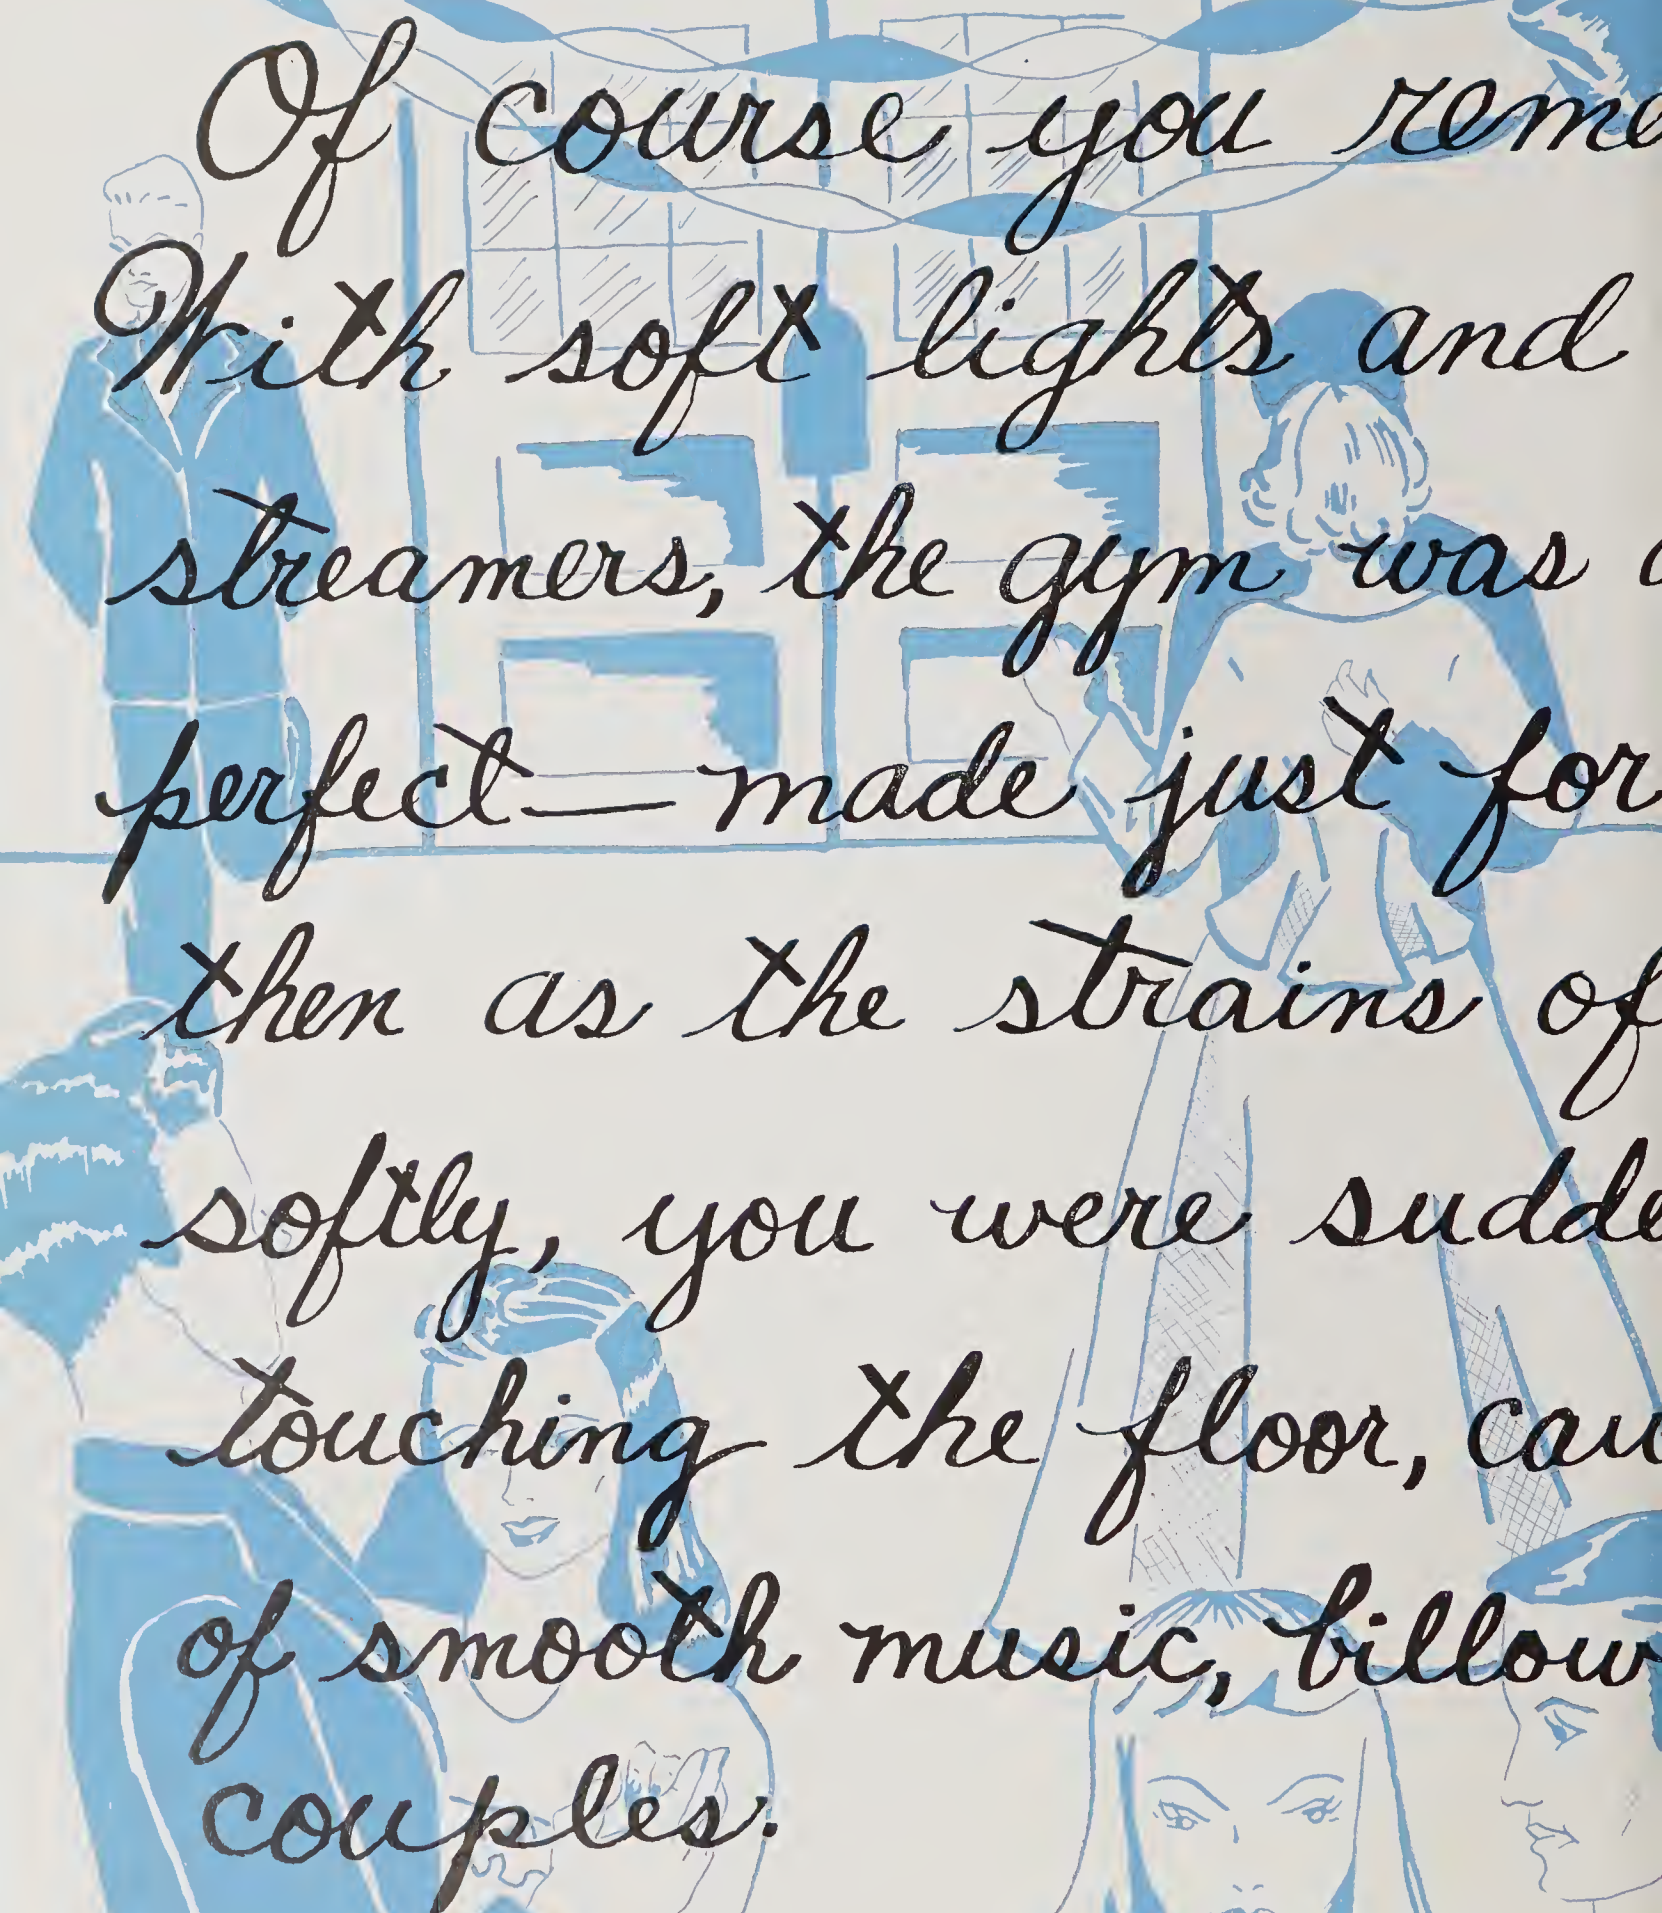 Of course you reme
With soft lights and
streamers, the gym was
perfect—made just for
then as the strains of
softly, you were sudde
touching the floor, cau
of smooth music, billow
couples.